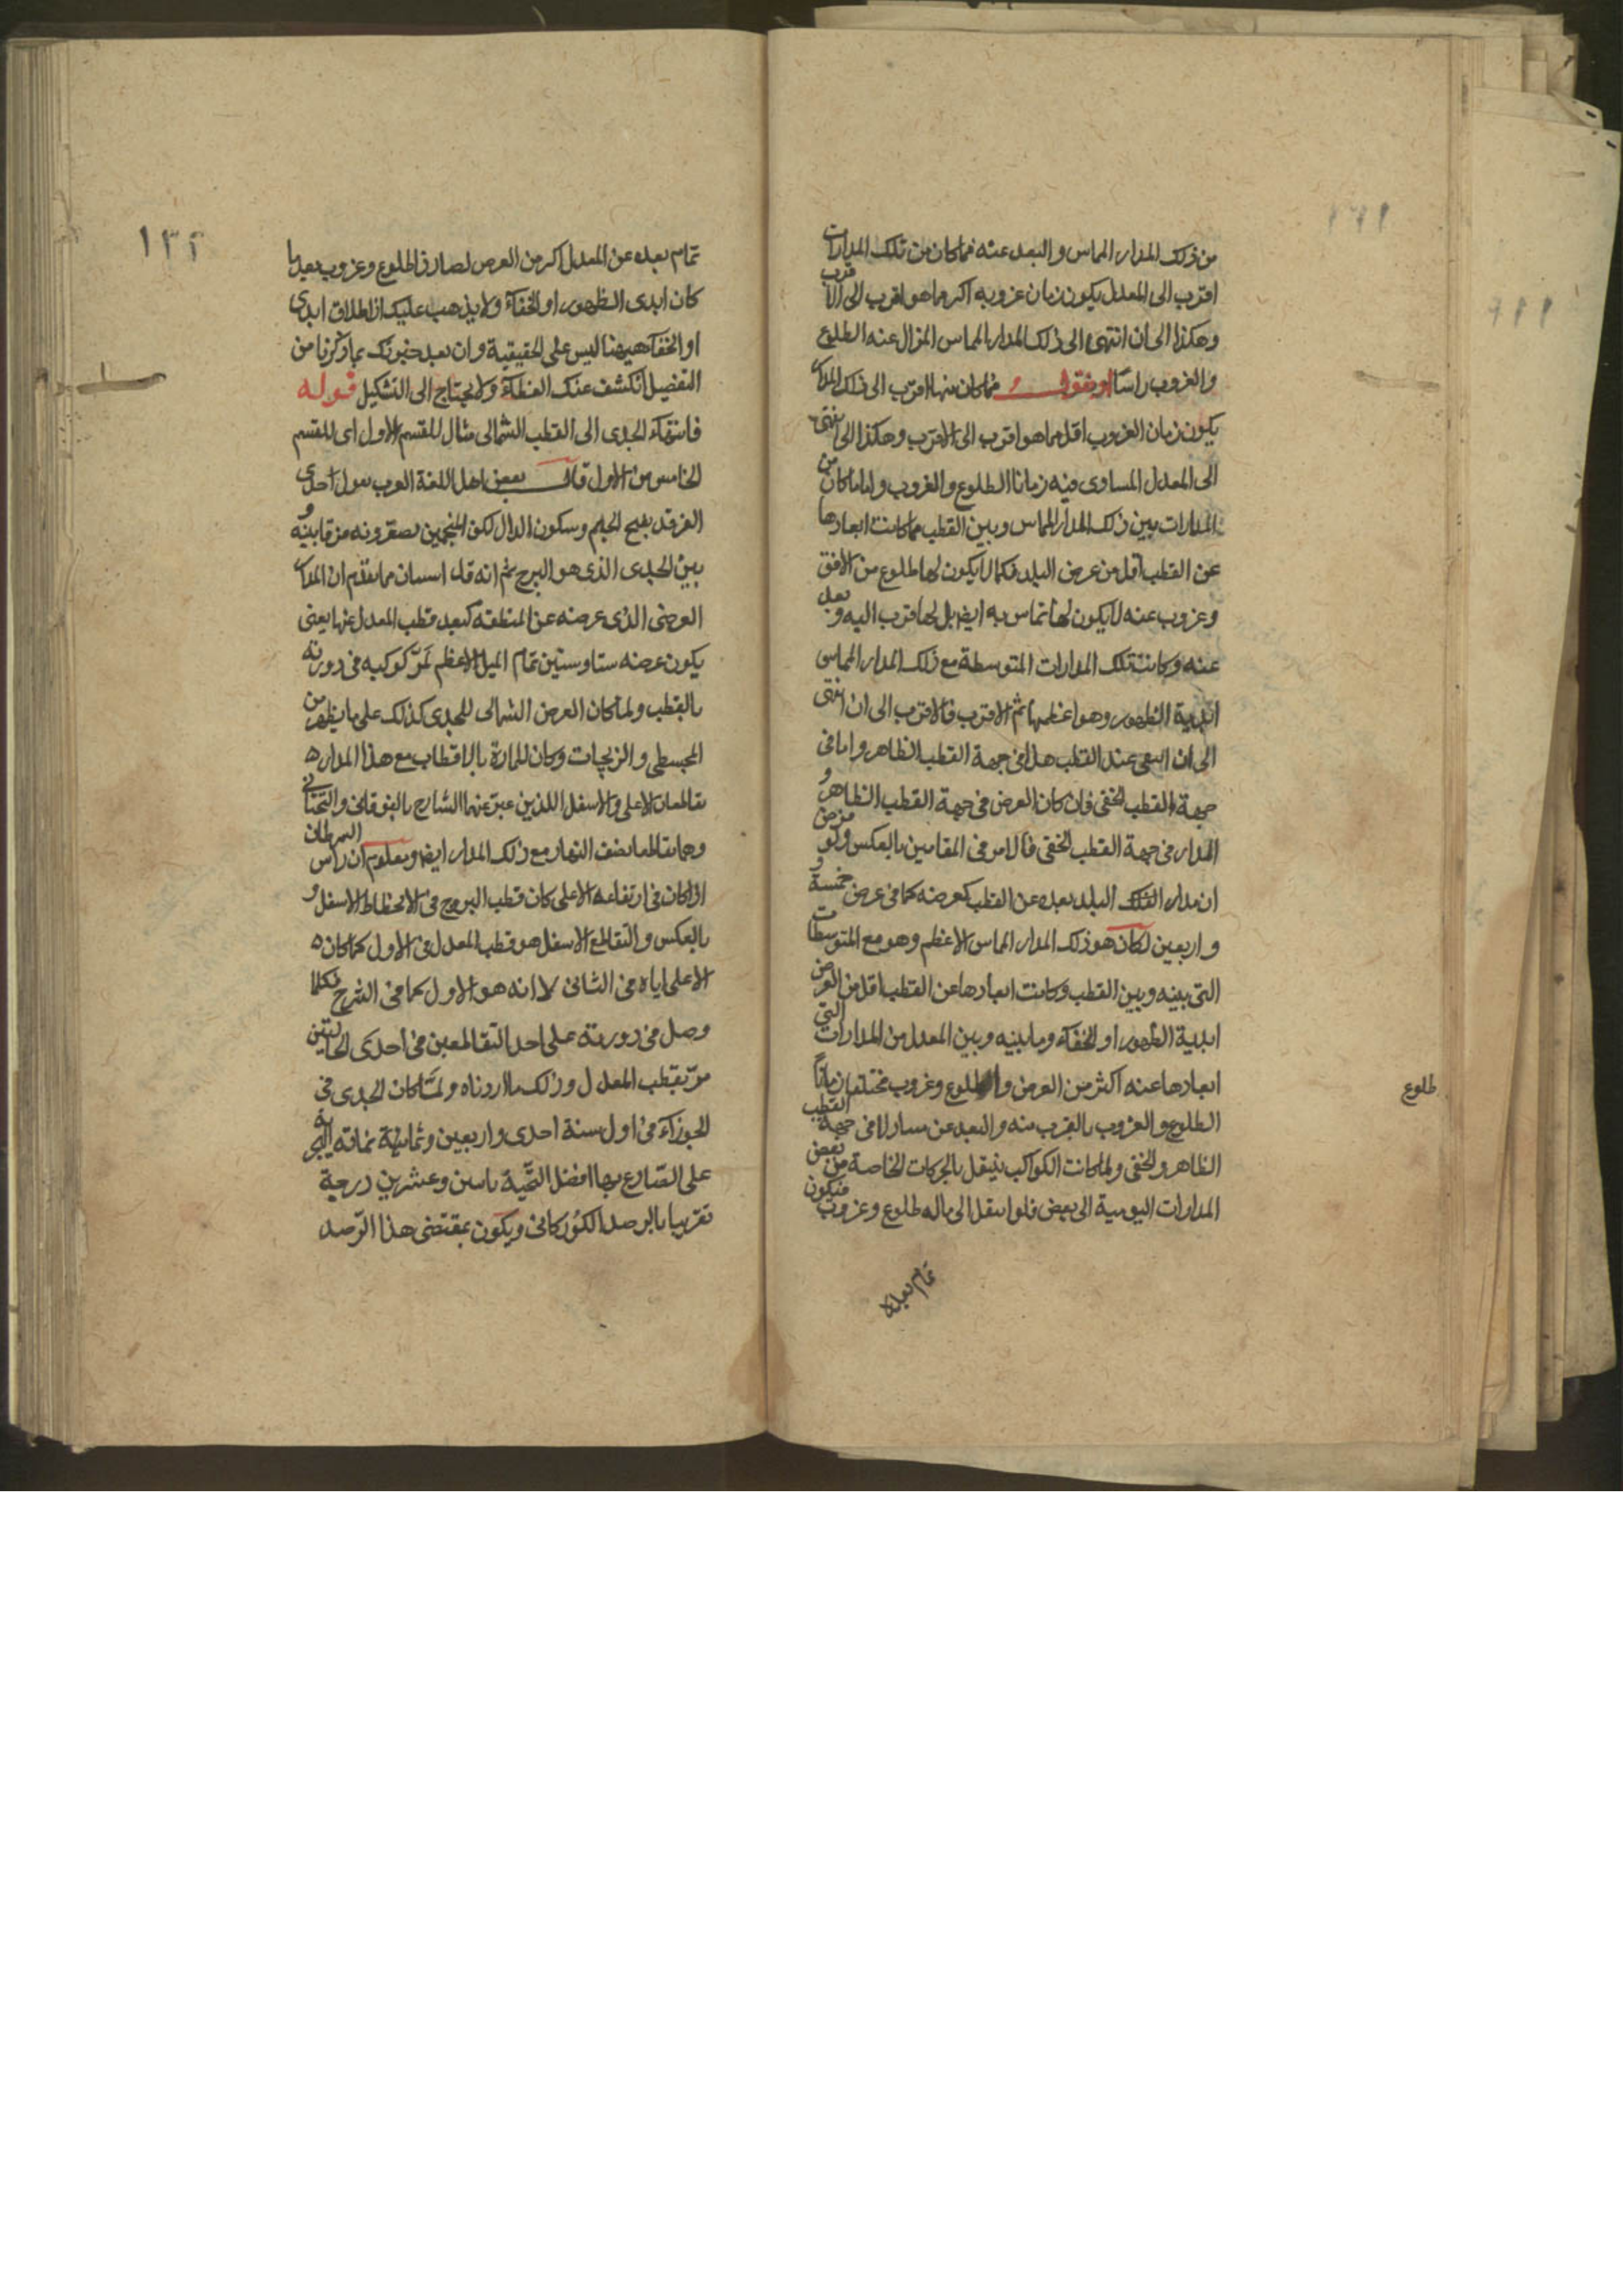 من ذلك المدار المماس والبعد عنه فما كان من تلك المدارات
اقرب الى المعدل يكون زمان غروبه اكثر مما هو اقرب الى الاقرب
وهكذا الى ان انتهى الى ذلك المدار المماس المزال عنه الطلوع
والغروب راسا او نقول فما كان منها اقرب الى ذلك المدار
يكون زمان الغروب اقل مما هو اقرب الى الاقرب وهكذا الى ينتهى
الى المعدل المساوى فيه زمانا الطلوع والغروب واما ما كان من
المدارات بين ذلك المدار المماس وبين القطب مما كانت ابعادها
عن القطب اقل من عرض البلد فكما لا يكون لها طلوع من الافق
وغروب عنه لا يكون لها تماس به ايضا بل لها قرب اليه وبعد
عنه وكانت تلك المدارات المتوسطة مع ذلك المدار المماس
ابدية الظهور وهو اعظمها ثم الاقرب فالاقرب الى ان انتهى
الى ان عند القطب هذا فى جهة القطب الظاهر واما فى
جهة القطب الخفى فان كان العرض فى جهة القطب الظاهر و
المدار فى جهة القطب الخفى فالامر فى المقامين بالعكس ولو فرض
ان مدار البلد بعده عن القطب كعرضه كما فى عرض خمسة و
واربعين لكان هو ذلك المدار المماس الاعظم وهو مع المتوسطات
التى بينه وبين القطب وكانت ابعادها عن القطب اقل من العرض
ابدية الظهور او الخفاء وما بينه وبين المعدل من المدارات التى
ابعادها عنه اكثر من العرض طلوع وغروب مختلفا زمانا
طلوع
الطلوع والغروب بالقرب منه والبعد عن فى جهة القطب
الظاهر والخفى ولما كانت الكواكب ينتقل بالحركات الخاصة من بعض
المدارات اليومية الى بعض فلو انتقل الى ما له طلوع وغروب فيكون
تمام بعده
١٣٢
تمام بعده عن المعدل اكثر من العرض لصار ذا طلوع وغروب بعد ما
كان ابدى الظهور او الخفاء ولا يذهب عليك ان اطلاق ابدى
او الخفاء هيهنا ليس على الحقيقية وان بعد خبرتك بما ذكرنا من
التفصيل انكشف عنك الغطاء ولا يحتاج الى التشكيل قوله
فانتهاء الجدى الى القطب الشمالى مثال للقسم الاول اى للقسم
الخامس من الاول قال بعض اهل اللغة العرب يقول احدى
الفرقد بفتح الجيم وسكون الدال لكن المنجمين يصغرونه فرقا بينه و
بين الجدى الذى هو البرج ثم انه قد استبان مما تقدم ان المدار
العرضى الذى عرضه عن المنطقة كبعد قطب المعدل عنها يعنى
يكون عرضه ستا وستين تمام الميل الاعظم تمرّ كوكبه فى دورته
بالقطب ولما كان العرض الشمالى للجدى كذلك على ما يظهر من
المجسطى والزيجات وكان للمارة بالاقطاب مع هذا المدار
تقاطعان الاعلى والاسفل اللذين عبر عنهما الشارح بالفوقانى والتحتانى
وهما تقاطعا نصف النهار مع ذلك المدار ايضا ومعلوم ان راس السرطان
اذا كان فى ارتفاعه الاعلى كان قطب البروج فى الانحطاط الاسفل و
بالعكس والتقاطع الاسفل هو قطب المعدل فى الاول كما كان
الاعلى اياه فى الثانى لا انه هو الاول كما فى الشرح فكلما
وصل فى دورته على احد التقاطعين فى احدى الحالتين
مرّ بقطب المعدل وذلك ما اردناه ولمّا كان الجدى فى
الجوزاء فى اول سنة احدى واربعين وثمانمائة
على الصادع بها افضل التحية وعشرين درجة
تقريبا بالرصد الكوركانى ويكون بمقتضى هذا الرّصد